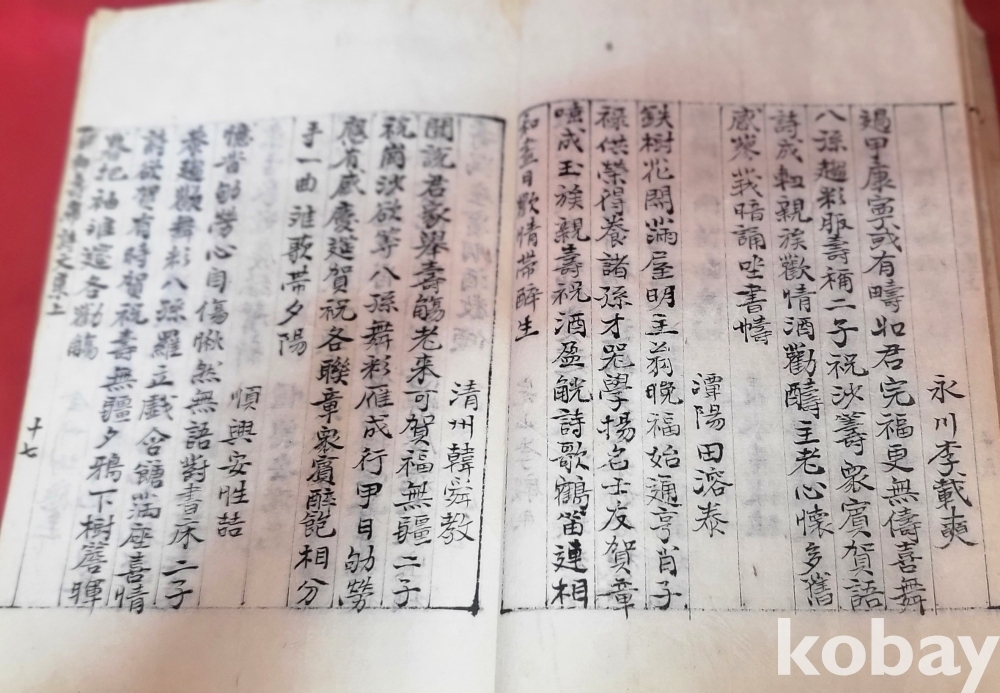 永川李載奭
過甲康寅或有疇如君完福更無儔喜舞
八孫趨彩服壽補二子祝沙籌衆賓賀語
詩成軸親族歡情酒勸醻主老心懷多舊
感寒我暗誦坐書幬
潭陽田溶泰
鉄樹花開滿屋明主翁晚福始通亨肖子
祿供榮得養諸孫才器學揚名士友賀章
嘵成玉族親壽祝酒盈觥詩歌鶴笛連相
和盡日歡情帶醉生
清州韓舜教
聞說君家舉壽觴老來可賀福無疆二子
祝崗沙欲等八孫舞彩雁成行甲日劬勞
應有感慶筵賀祝各聯章衆賓醉飽相分
手一曲淮歌帶夕陽
順興安性喆
憶昔劬勞心自傷愀然無語對書床二子
養趨觀舞彩八孫羅立戲含飴滿座喜情
詩欲習有時賀祝壽無疆夕鴉下樹簷暉
暮把袖誰違各勸觴
詩文集上
十七
kobay